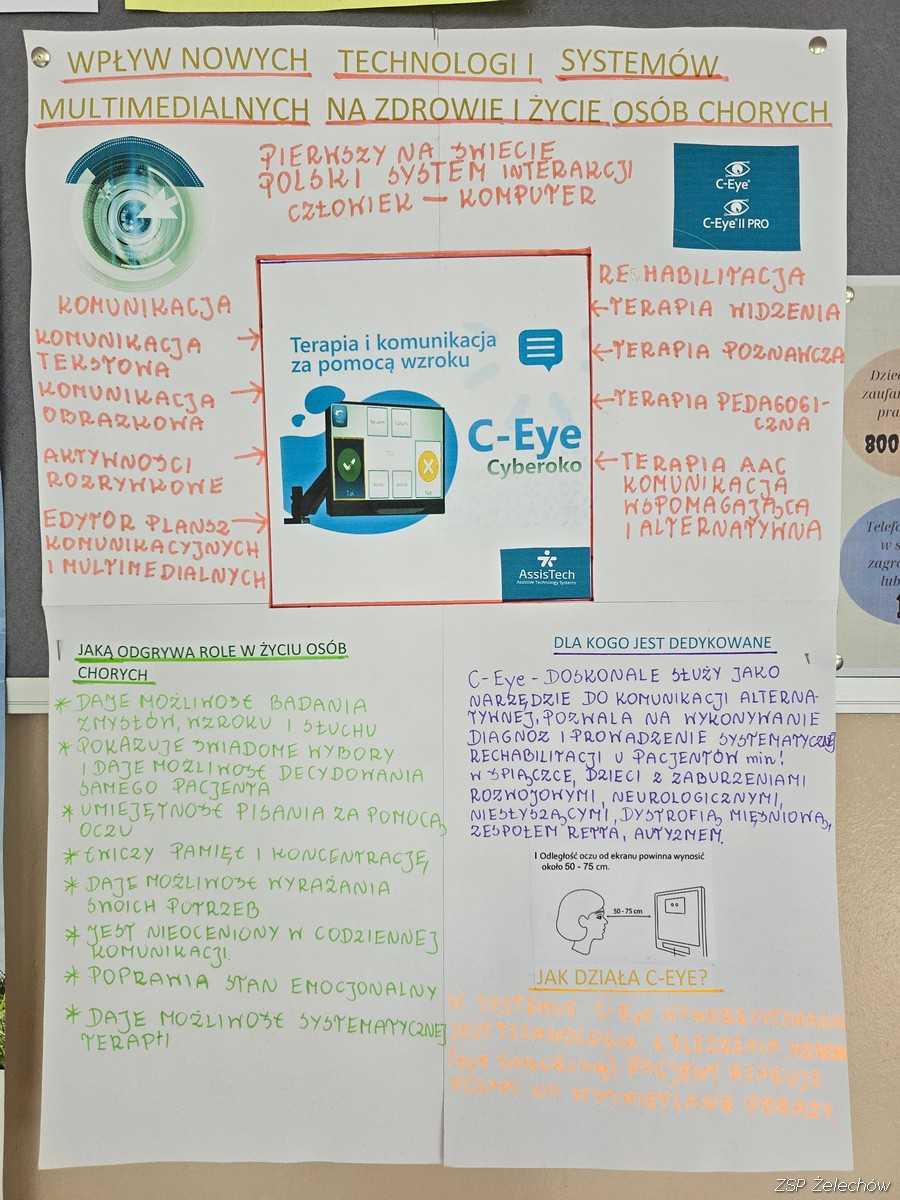 WPŁYW NOWYCH TECHNOLOGI I SYSTEMÓW
MULTIMEDIALNYCH NA ZDROWIE I ŻYCIE OSÓB CHORYCH
PIERWSZY NA SWIECIE
POLSKI SYSTEM INTERAKCJI
CZŁOWIEK — KOMPUTER
C-Eye®
C-Eye® II PRO
KOMUNIKACJA
KOMUNIKACJA
TEKSTOWA
KOMUNIKACJA
OBRAZKOWA
AKTYWNOŚCI
ROZRYWKOWE
EDYTOR PLANSZ
KOMUNIKACYJNYCH
I MULTIMEDIALNYCH
Terapia i komunikacja
za pomocą wzroku
C-Eye
Cyberoko
Tak
Nie
AssisTech
Assistive Technology Systems
REHABILITACJA
TERAPIA WIDZENIA
TERAPIA POZNAWCZA
TERAPIA PEDAGOGI-
CZNA
TERAPIA AAC
KOMUNIKACJA
WSPOMAGAJĄCA
I ALTERNATYWNA
JAKĄ ODGRYWA ROLE W ŻYCIU OSÓB
CHORYCH
* DAJE MOŻLIWOŚĆ BADANIA
ZMYSŁÓW, WZROKU I SŁUCHU
* POKAZUJE SWIADOME WYBORY
I DAJE MOŻLIWOŚĆ DECYDOWANIA
SAMEGO PACJENTA
* UMIEJĘTNOŚĆ PISANIA ZA POMOCĄ
OCZU
* ĆWICZY PAMIĘĆ I KONCENTRACJĘ
* DAJE MOŻLIWOŚĆ WYRAŻANIA
SWOICH POTRZEB
* JEST NIEOCENIONY W CODZIENNEJ
KOMUNIKACJI.
* POPRAWIA STAN EMOCJONALNY
* DAJE MOŻLIWOŚĆ SYSTEMATYCZNEJ
TERAPII
DLA KOGO JEST DEDYKOWANE
C-Eye - DOSKONALE SŁUŻY JAKO
NARZĘDZIE DO KOMUNIKACJI ALTERNA-
TYWNEJ, POZWALA NA WYKONYWANIE
DIAGNOZ I PROWADZENIE SYSTEMATYCZNEJ
RECHABILITACJI U PACJENTÓW min!
W ŚPIĄCZCE, DZIECI Z ZABURZENIAMI
ROZWOJOWYMI, NEUROLOGICZNYMI,
NIESŁYSZĄCYMI, DYSTROFIĄ MIĘŚNIOWĄ,
ZESPOŁEM RETTA, AUTYZMEM.
I Odległość oczu od ekranu powinna wynosić
około 50 - 75 cm.
50 - 75 cm
JAK DZIAŁA C-EYE?
W SYSTEMIE C-Eye WYKORZYSTYWANA
JEST TECHNOLOGIA ŚLEDZENIA WZROKU
(eye tracking). PACJENT REAGUJE
OCZAMI NA WYŚWIETLANE OBRAZY.
Dziec
zaufan
pra
800
Telefo
w s
zagro
lub
ZSP Żelechów